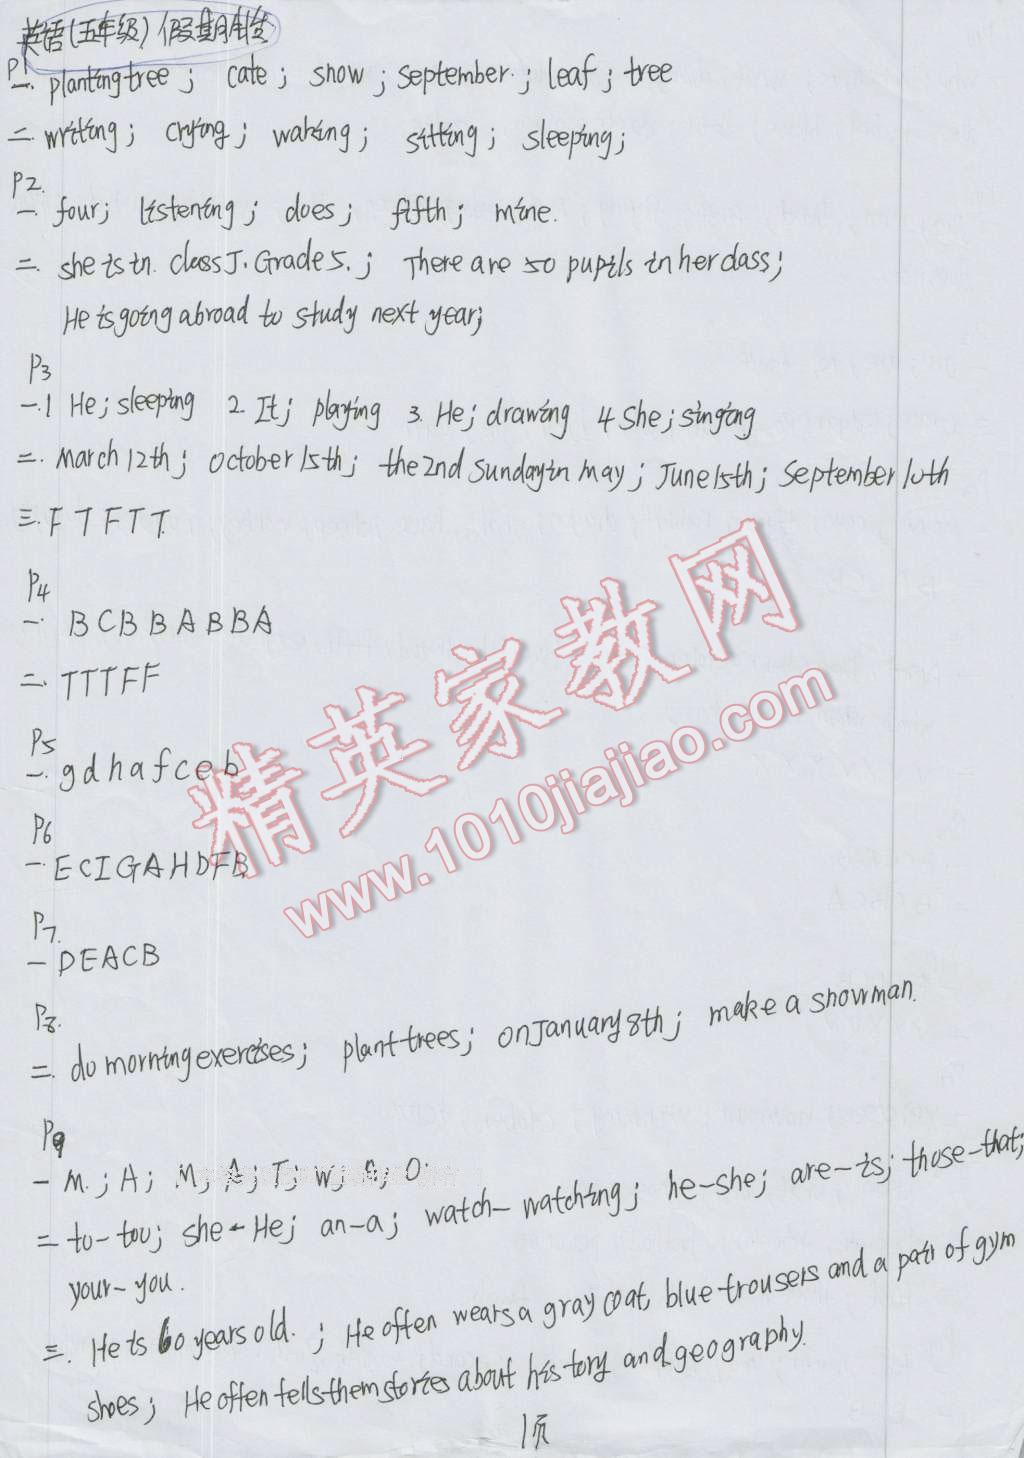 英语(五年级)假期生
P1
一. planting tree; cate; show; september.; leaf; tree
二. writing; crying; waking; sitting; sleeping;
P2.
一. four; listening; does; fifth; mine.
二. she is in. class J. Grade 5.; There are 50 pupils in her class;
He is going abroad to study next year;
P3
一.1 He; sleeping 2. It; playing 3. He; drawing 4 She; singing
二. March 12th; October 15th; the 2nd Sunday in may; June 15th; September 10th
三. F T F T T.
P4
一. B C B B A B B A
二. T T T F F
P5
一. g d h a f c e b
P6
一. E C I G A H D F B
P7.
一 D E A C B
P8.
二. do morning exercises; plant trees; on January 8th; make a snowman.
P9
一 M.; A; M; A; T; W; A; O.
二 to-too; she-He; an-a; watch-watching; he-she; are-is; those-that;
your-you.
三. He is 60 years old.; He often wears a gray coat, blue trousers and a pair of gym
shoes; He often tells them stories about history and geography.
1页
精英家教网
www.1010jiajiao.com